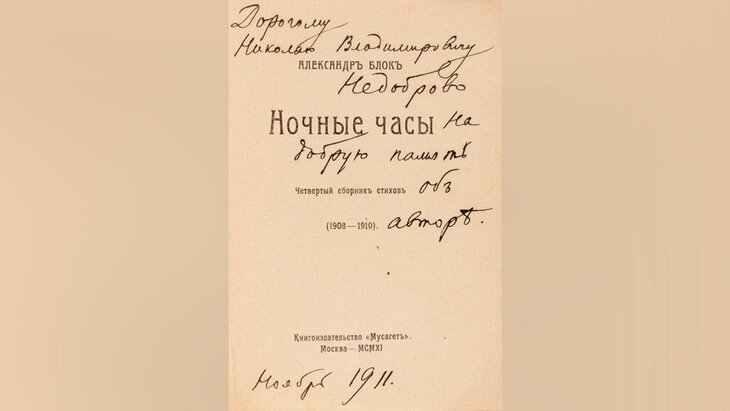 Дорогому
Николаю Владимировичу
АЛЕКСАНДРЪ БЛОКЪ
Недоброво
Ночные часы на
добрую память
Четвертый сборникъ стиховъ объ
(1908—1910). авторѣ.
Книгоиздательство «Мусагетъ».
Москва — MCMXI
Ноябрь 1911.